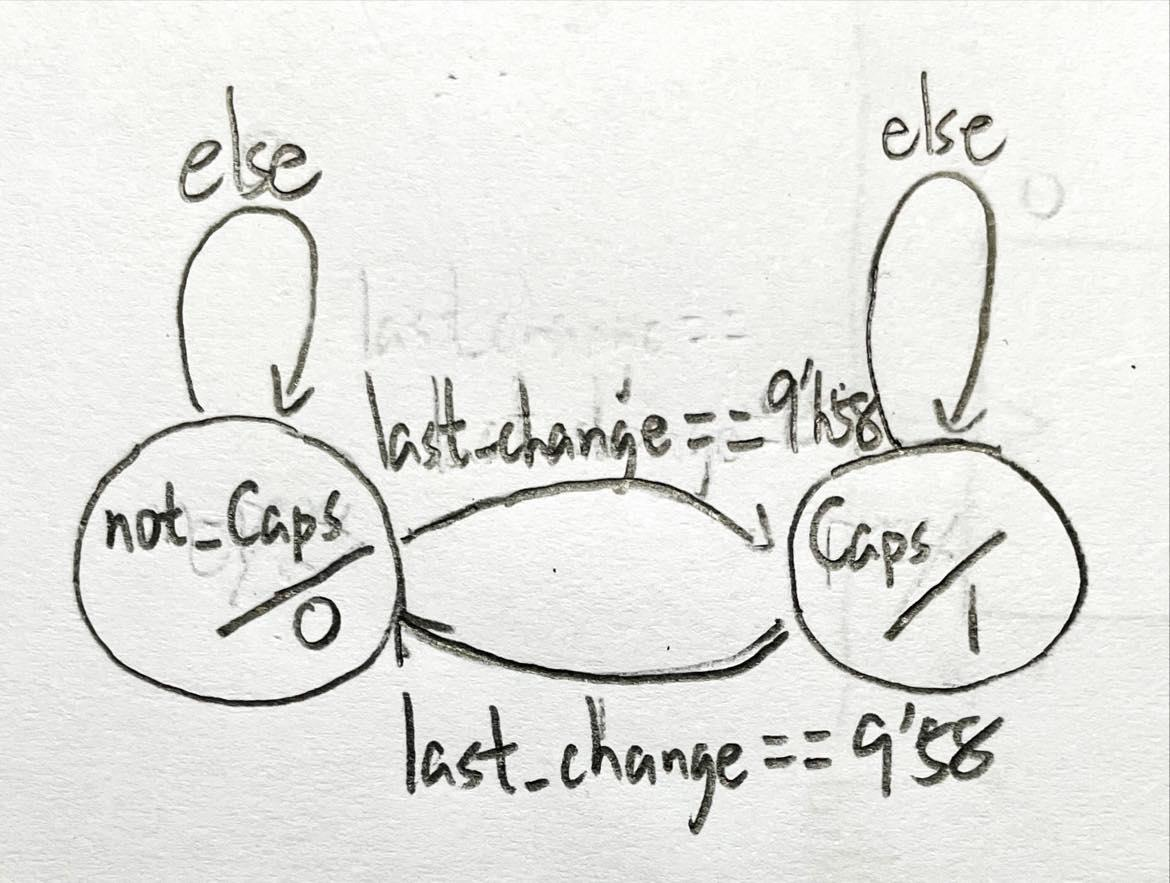 else
else
last_change == 9'h58
not_Caps
/0
Caps
/1
last_change == 9'58